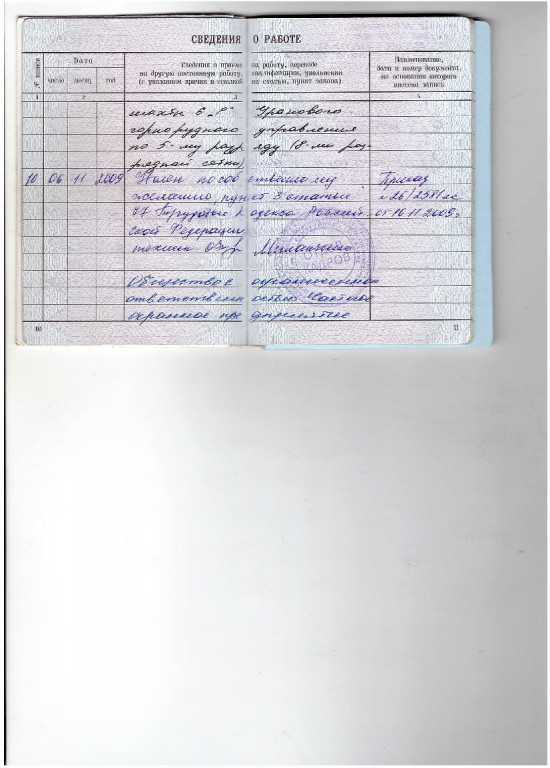 СВЕДЕНИЯ О РАБОТЕ
№ записи
Дата
число
месяц
год
Сведения о приеме на работу, переводе
на другую постоянную работу, квалификации, увольнении
(с указанием причин и ссылкой на статью, пункт закона)
Наименование,
дата и номер документа,
на основании которого
внесена запись
1 2 3 4
шахты 6 „Р" Уранового
горнорудного управления
по 5-му разряду 18-ми раз-
рядной сетки
10 06 11 2009 Уволен по собственному Приказ
желанию, пункт 3 статьи №26/2581лс
77 Трудового Кодекса Россий- от 16.11.2009г
ской Федерации
техник
Общество с ограниченной
ответственностью Частное
охранное предприятие
10 11